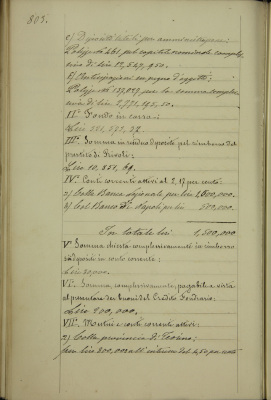 805.
c) D'oggetti
Polizze N° 461 per capitale nominale comples
siva di Lire 12,547,950.
d) Anticipazioni su pegno d'oggetti:
Polizze N° 137,099 per la somma comples
siva di Lire 2,771,195,50.
II° Fondo in cassa:
Lire 551,572, 77.
III° Somma in deposito pel rimborso dei
prestiti di Privati:
Lire 10,851, 69.
IV° Conti correnti attivi al 2,17 per cento:
a) Colla Banca Nazionale per lire 1,000,000.
b) Col Banco di Napoli per lire 500,000
In totale lire 1,500,000
V° Somma chiesta complessivamente in rimborso
su depositi in conto corrente:
Lire 20,000.
VI° Somma, complessivamente, pagabile a vista
al presentare dei buoni del Credito Fondiario:
Lire 100,000.
VII° Mutui e conti correnti attivi:
a) Colla provincia di Teramo:
per lire 800,000 all'interesse del 4,50 per cento